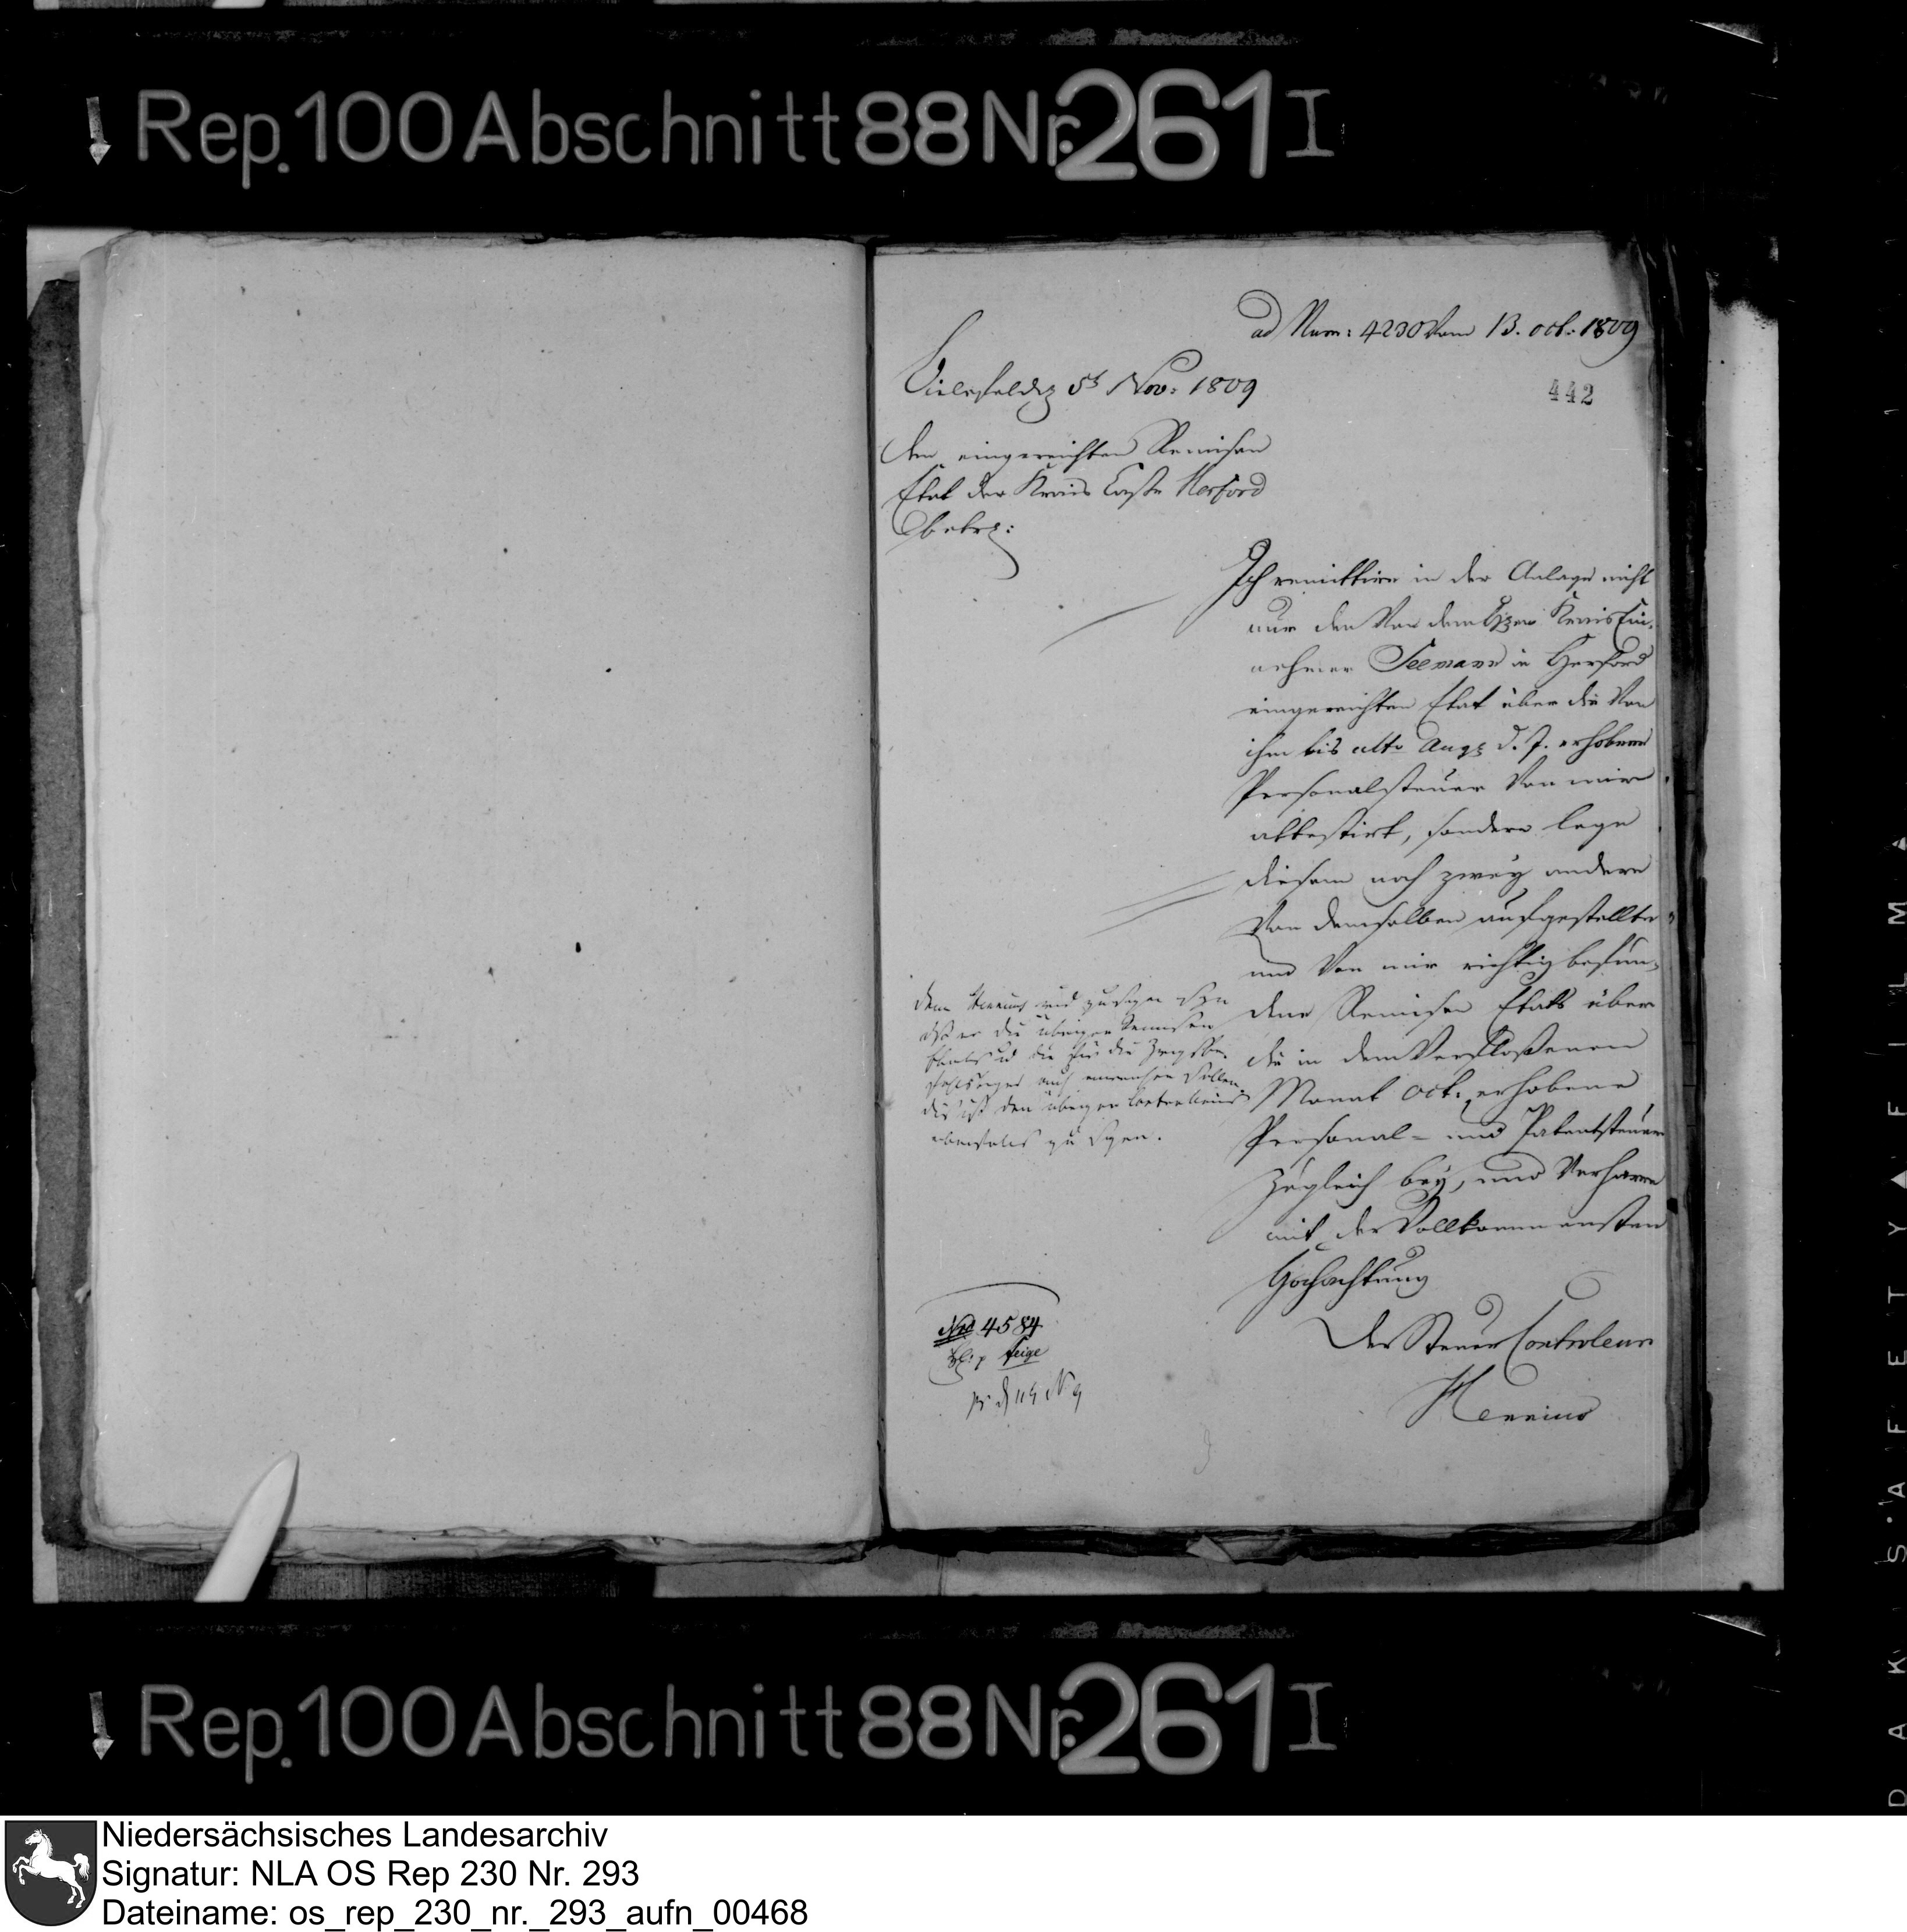 Rep. 100 Abschnitt 88 Nr. 261 I
ad Num: 4230 vom 13. oct: 1809
442
Bielefeld 5t Nov: 1809
Den eingereichten Remisen
Etat der Kreis Casse Herford
betr:
Ich remittire in der Anlage nicht
nur den von dem Kreis Ein-
nehmer Seemann in Herford
eingereichten Etat über die von
ihm bis ulto Aug d. J. erhobene
Personalsteuer von mir
attestirt, sondern lege
diesem noch zwey andere
von demselben aufgestellte
und von mir richtig befun-
dene Remisen Etats über
die in dem verfloßenen
Monat oct. erhobene
Personal- und Patentsteuer
zugleich bey, und verharre
mit der vollkommensten
Hochachtung
Der Steuer Controleur
Dem
daß er die übrigen Remisen
Etats
auch einreichen sollen
den übrigen Controlleurs
ebenfalls zu
No 4584
Rep. 100 Abschnitt 88 Nr. 261 I
Niedersächsisches Landesarchiv
Signatur: NLA OS Rep 230 Nr. 293
Dateiname: os_rep_230_nr._293_aufn_00468
SAFETY FILM